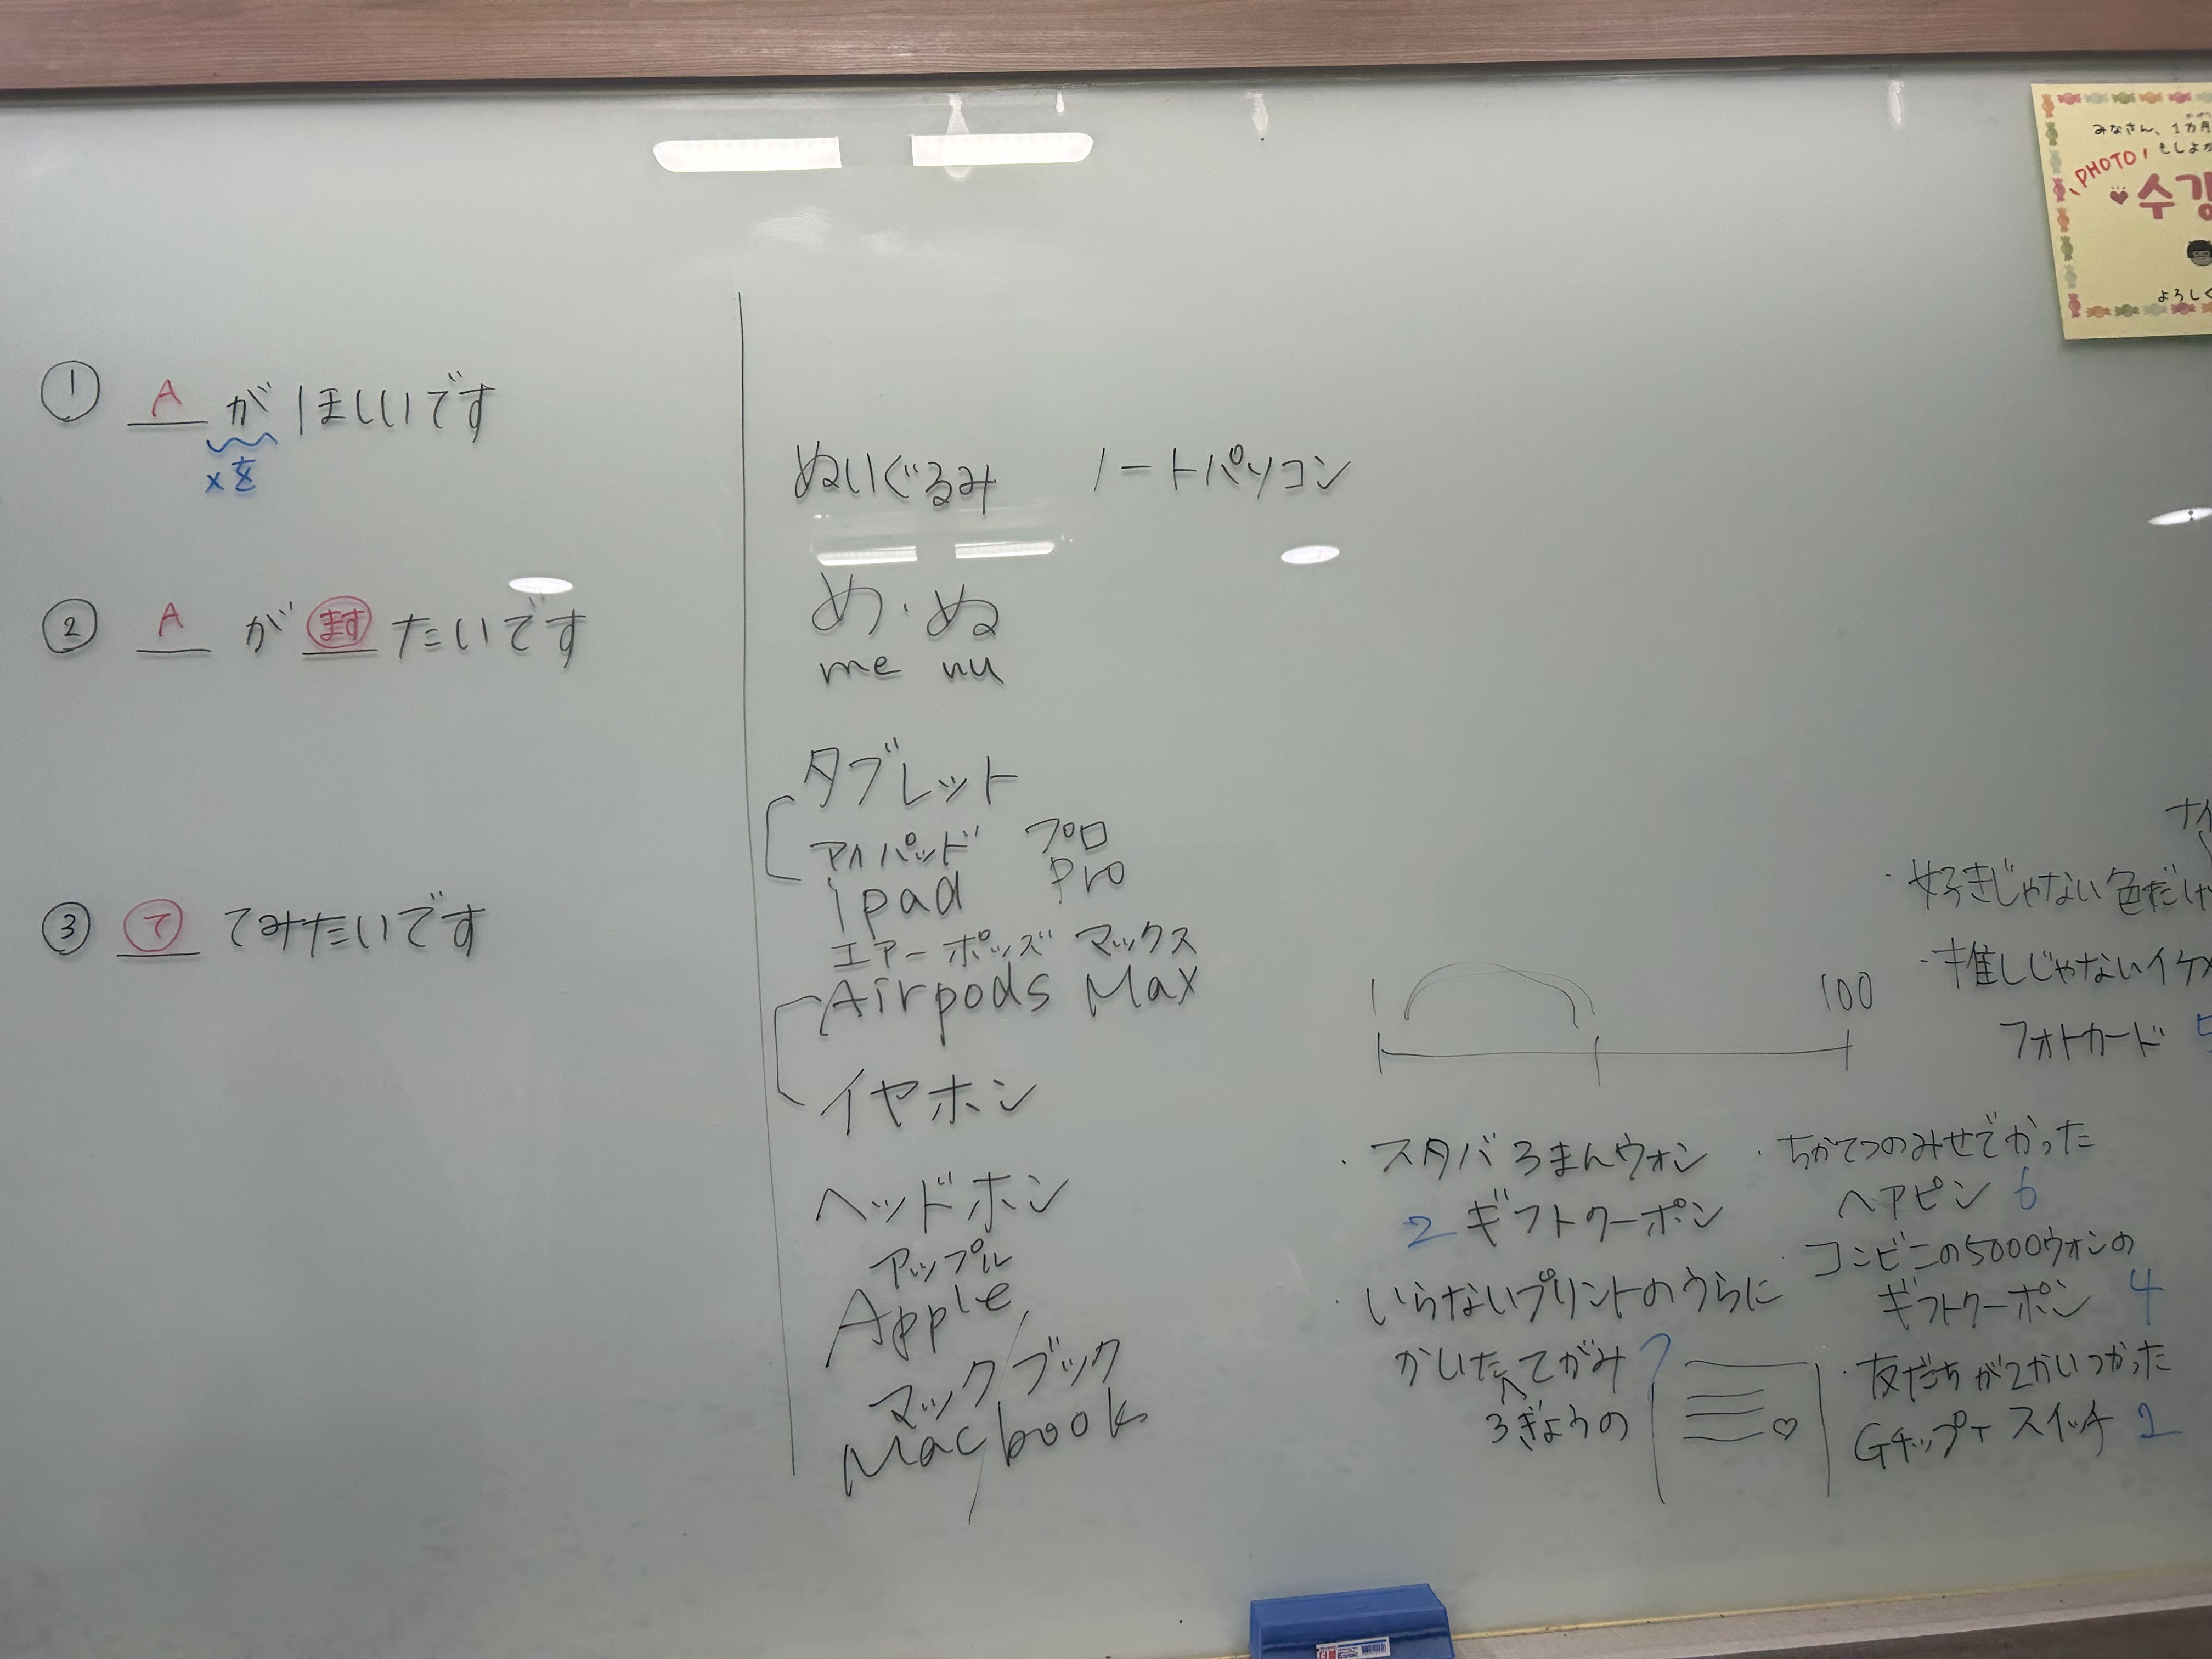 ① A がほしいです
×を
② A が ます たいです
③ て てみたいです
ぬいぐるみ ノートパソコン
め・ぬ
me nu
タブレット
アイパッド プロ
ipad Pro
エアーポッズ マックス
Airpods Max
イヤホン
ヘッドホン
アップル
Apple
マックブック
Macbook
1 100
・スタバ3まんウォン
2 ギフトクーポン
・いらないプリントのうらに
かいたてがみ ?
3ぎょうの
・ちかてつのみせでかった
ヘアピン 6
・コンビニの5000ウォンの
ギフトクーポン 4
・友だちが2かいつかった
Gチップ スイッチ 1
ナイ
・好きじゃない色だけ
・推しじゃないイケメ
フォトカード 5
みなさん、1カ月
もしよか
PHOTO!
수강
よろしく